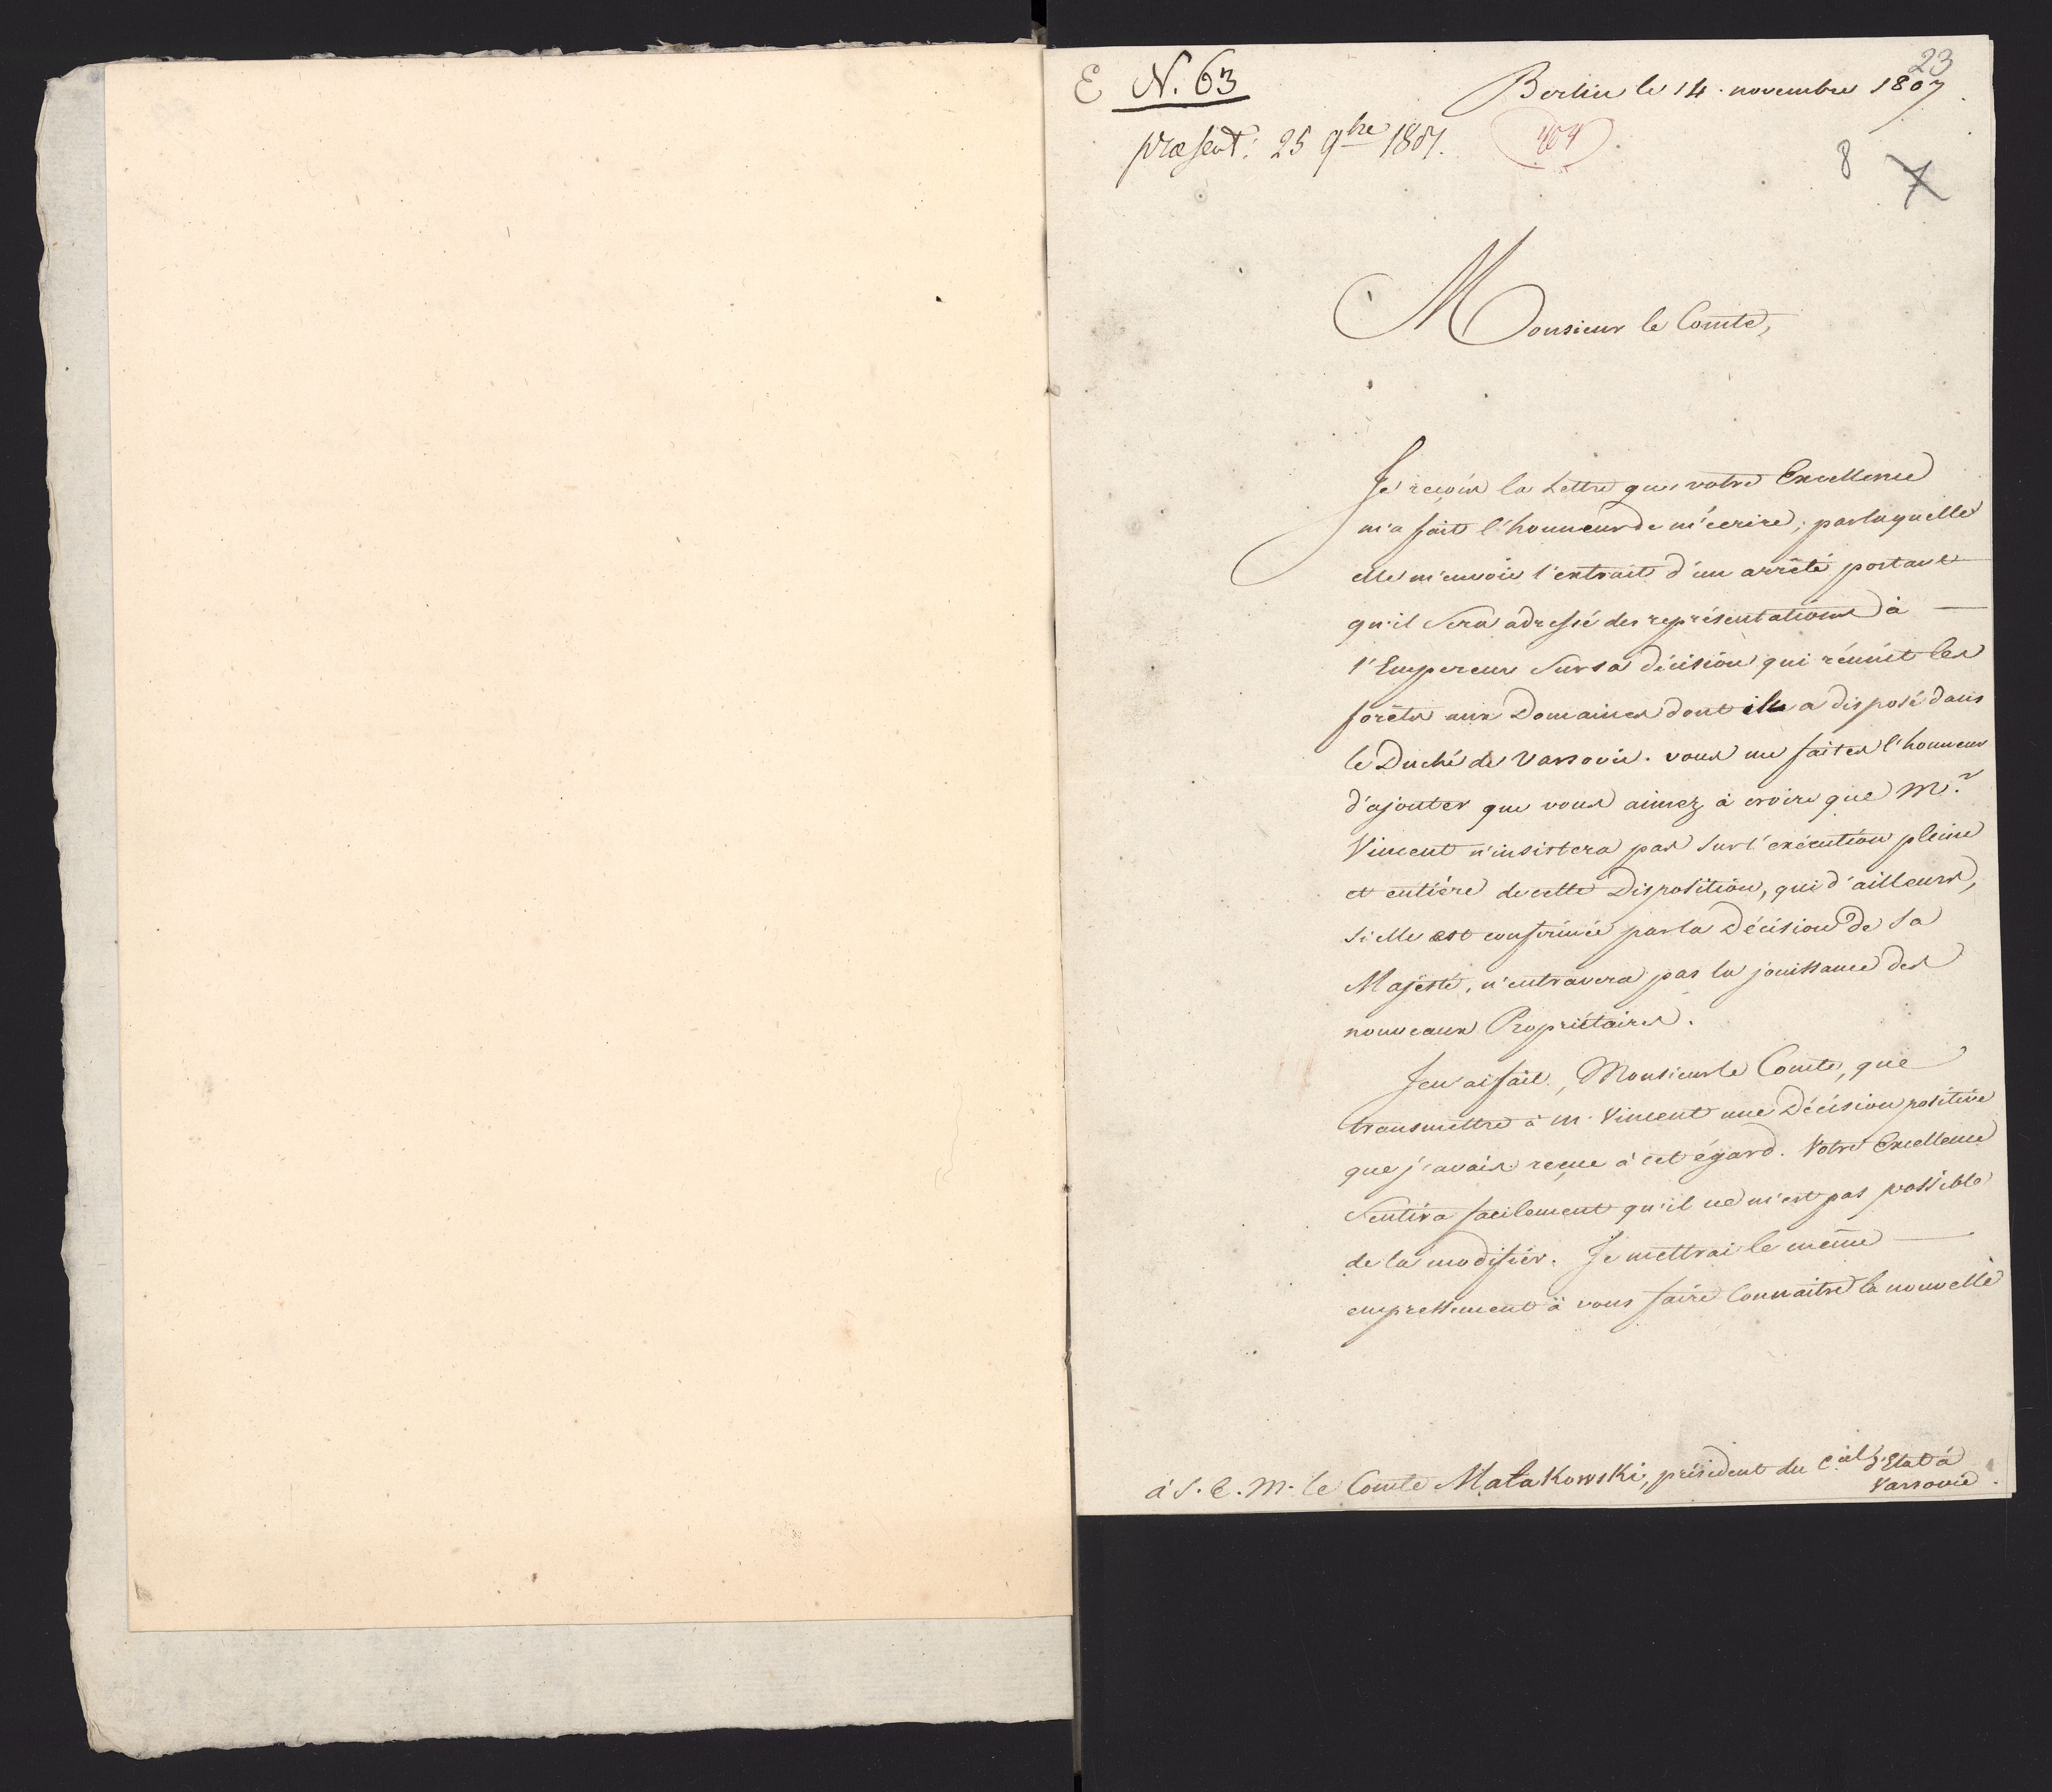 23
E N. 63
Berlin le 14. novembre 1807.
præsent: 25 9bre 1807.
404
8 7
Monsieur le Comte,
Je reçois la Lettre que votre Excellence
m'a fait l'honneur de m'écrire, par laquelle
elle m'envoie l'extrait d'un arrêté portant
qu'il sera adressé des représentations à
l'Empereur sur sa décision qui réunit les
forêts aux Domaines dont elle a disposé dans
le Duché de Varsovie. vous me faites l'honneur
d'ajouter que vous aimez à croire que Mr.
Vincent n'insistera pas sur l'exécution pleine
et entière de cette Disposition, qui d'ailleurs,
si elle est confirmée par la Décision de Sa
Majesté, n'entravera pas la jouissance des
nouveaux Propriétaires.
Je n'ai fait, Monsieur le Comte, que
transmettre à M. Vincent une Décision positive
que j'avais reçue à cet égard. Votre Excellence
sentira facilement qu'il ne m'est pas possible
de la modifier. Je mettrai le même
empressement à vous faire Connaitre la nouvelle
à S. E. M. le Comte Małakowski, président du Ceil d'Etat à
Varsovie.